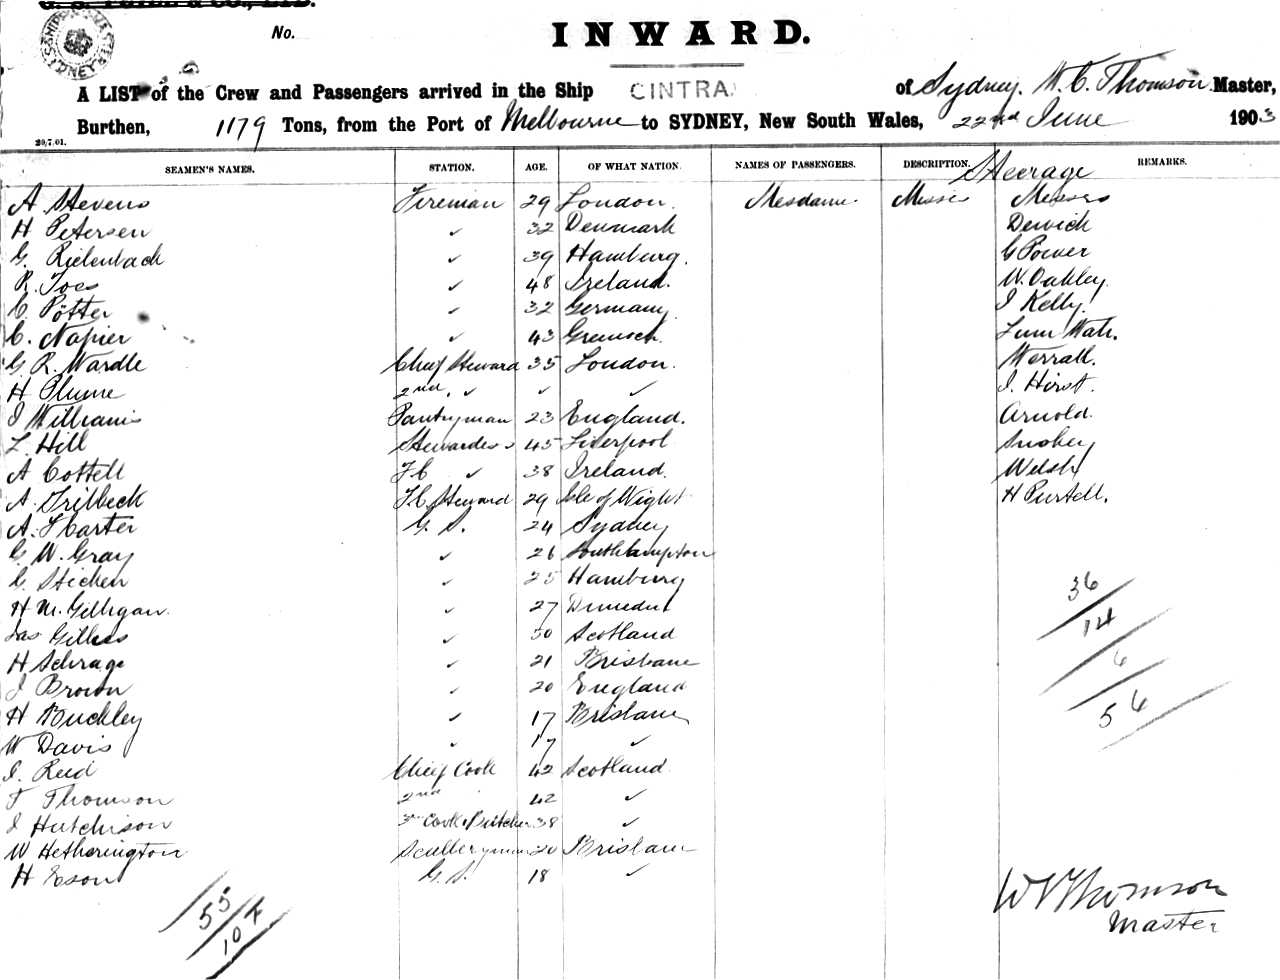 No.
INWARD.
A LIST of the Crew and Passengers arrived in the Ship CINTRA of Sydney. W. C. Thomson Master,
Burthen, 1179 Tons, from the Port of Melbourne to SYDNEY, New South Wales, 22nd June 1903
20,7.01.
SEAMEN'S NAMES. STATION. AGE. OF WHAT NATION. NAMES OF PASSENGERS. DESCRIPTION. REMARKS.
Steerage
A Stevens Fireman 29 London. Mesdame Misses Messrs
H Petersen ✓ 32 Denmark Derwick
G. Rielenbach ✓ 39 Hamburg. G Power
R. Joes ✓ 48 Ireland. W. Oakley
C. Pötter ✓ 32 Germany J Kelly.
C. Napier ✓ 43 Greenock
G R. Wardle Chief Steward 35 London. Werrall.
H Plume 2nd. ✓ ✓ ✓ J. Hirst.
J Williams Pantryman 23 England. Arnold
L. Hill Stewardess 45 Liverpool
A Cottell F C ✓ 38 Ireland. Welsh
A. Trilbeck F.C. Steward 29 Isle of Wight H Purtell.
A. Harter G. S. 24 Sydney
G W. Gray ✓ 26 Southampton
C. Stichen ✓ 25 Hamburg
H M. Gilligan ✓ 27 Dunedin
Jas Gillies ✓ 50 Scotland
H Schrage ✓ 21 Brisbane
J Brown ✓ 20 England
H Buckley ✓ 17 Brisbane
W Davis ✓ 17 ✓
J. Reid Chief Cook 42 Scotland
T Thomson 2nd 42 ✓
J Hutchison 3rd Cook & Butcher 38 ✓
W Hetherington Sculleryman 20 Brisbane
H Eson G. S. 18 ✓
36
14
6
56
55
107
W C Thomson
Master